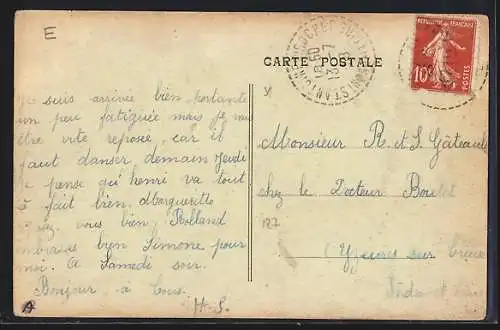 E
CARTE POSTALE
REPUBLIQUE FRANÇAISE
10c
POSTES
suis arrivée bien portante
un peu fatiguée mais je
être vite reposé, car il
faut danser demain Jeudi
Je pense qu'henri va tout
à fait bien. Marguerite
vous bien Rolland
bien Simone pour
moi. A Samedi soir.
Bonjour à tous
H. S.
Monsieur R. et S. Gâteault
chez le Docteur
127
Yzeures sur Creuse
Indre et Loire
A